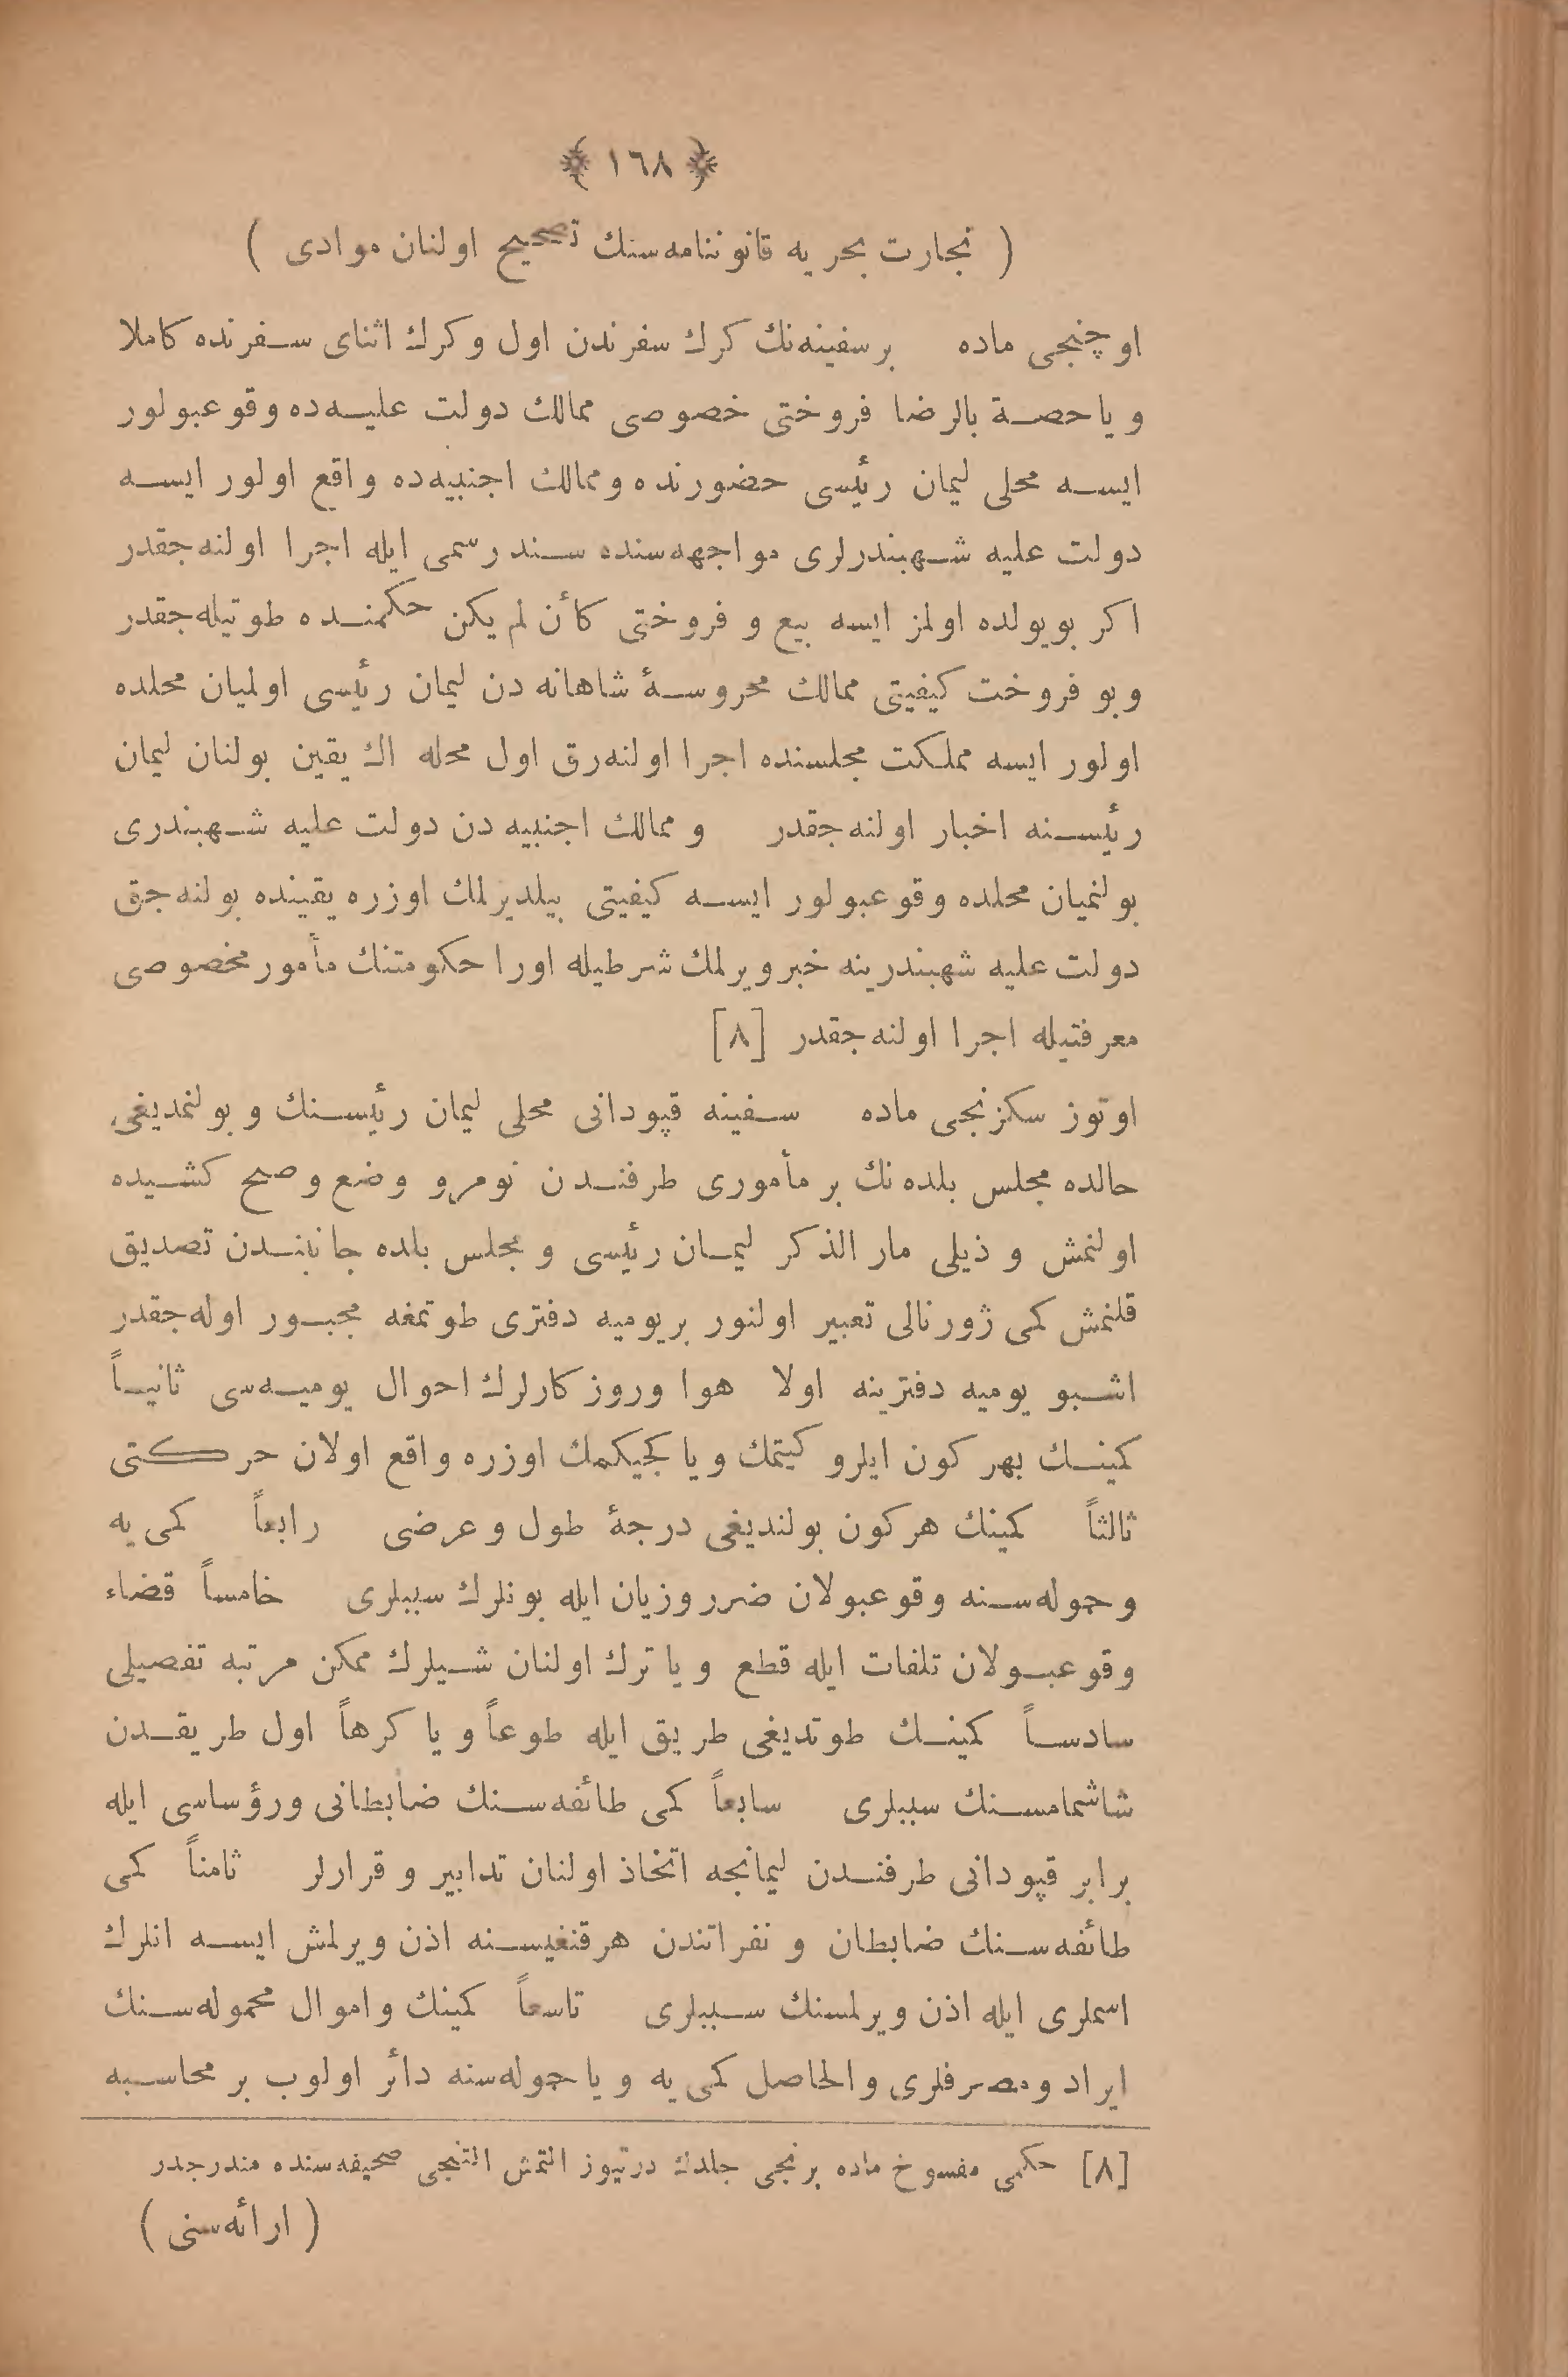 ﴿ ١٦٨ ﴾
( تجارت بحريه قانوننامه‌سنك تصحيح اولنان موادى )
اوچنجى ماده بر سفينه‌نك كرك سفرندن اول وكرك اثناى سفرنده كاملا
و يا حصة بالرضا فروختى خصوصى ممالك دولت عليه‌ده وقوعبولور
ايسه محلى ليمان رئيسى حضورنده وممالك اجنبيه‌ده واقع اولور ايسه
دولت عليه شهبندرلرى مواجهه‌سنده سند رسمى ايله اجرا اولنه‌جقدر
اكر بو يولده اولمز ايسه بيع و فروختى كأن لم يكن حكمنده طوتيله‌جقدر
وبو فروخت كيفيتى ممالك محروسۀ شاهانه دن ليمان رئيسى اولميان محلده
اولور ايسه مملكت مجلسنده اجرا اولنه‌رق اول محله اك يقين بولنان ليمان
رئيسنه اخبار اولنه‌جقدر و ممالك اجنبيه دن دولت عليه شهبندرى
بولنميان محلده وقوعبولور ايسه كيفيتى بيلديرلمك اوزره يقينده بولنه‌جق
دولت عليه شهبندرينه خبر ويرلمك شرطيله اورا حكومتنك مأمور مخصوصى
معرفتيله اجرا اولنه‌جقدر [٨]
اوتوز سكزنجى ماده سفينه قپودانى محلى ليمان رئيسنك و بولنمديغى
حالده مجلس بلده‌نك بر مأمورى طرفندن نومرو وضع وصح كشيده
اولنمش و ذيلى مار الذكر ليمان رئيسى و مجلس بلده جانبندن تصديق
قلنمش كمى ژورنالى تعبير اولنور بر يوميه دفترى طوتمغه مجبور اوله‌جقدر
اشبو يوميه دفترينه اولا هوا وروزكارلرك احوال يوميه‌سى ثانياً
كمينك بهر كون ايلرو كيتمك ويا كجيكمك اوزره واقع اولان حركتى
ثالثاً كمينك هر كون بولنديغى درجۀ طول وعرضى رابعاً كمى يه
وحموله‌سنه وقوعبولان ضرر وزيان ايله بونلرك سببلرى خامساً قضاء
وقوعبولان تلفات ايله قطع و يا ترك اولنان شيلرك ممكن مرتبه تفصيلى
سادساً كمينك طوتديغى طريق ايله طوعاً و يا كرهاً اول طريقدن
شاشمامسنك سببلرى سابعاً كمى طائفه‌سنك ضابطانى ورؤساسى ايله
برابر قپودانى طرفندن ليمانجه اتخاذ اولنان تدابير و قرارلر ثامناً كمى
طائفه‌سنك ضابطان و نفراتندن هرقنغيسنه اذن ويرلمش ايسه انلرك
اسملرى ايله اذن ويرلمسنك سببلرى تاسعاً كمينك واموال محموله‌سنك
ايراد ومصرفلرى والحاصل كمى يه ويا حموله‌سنه دائر اولوب بر محاسبه
[٨] حكمى مفسوخ ماده برنجى جلدك درتيوز التمش التنجى صحيفه‌سنده مندرجدر
( ارائه‌سنى )